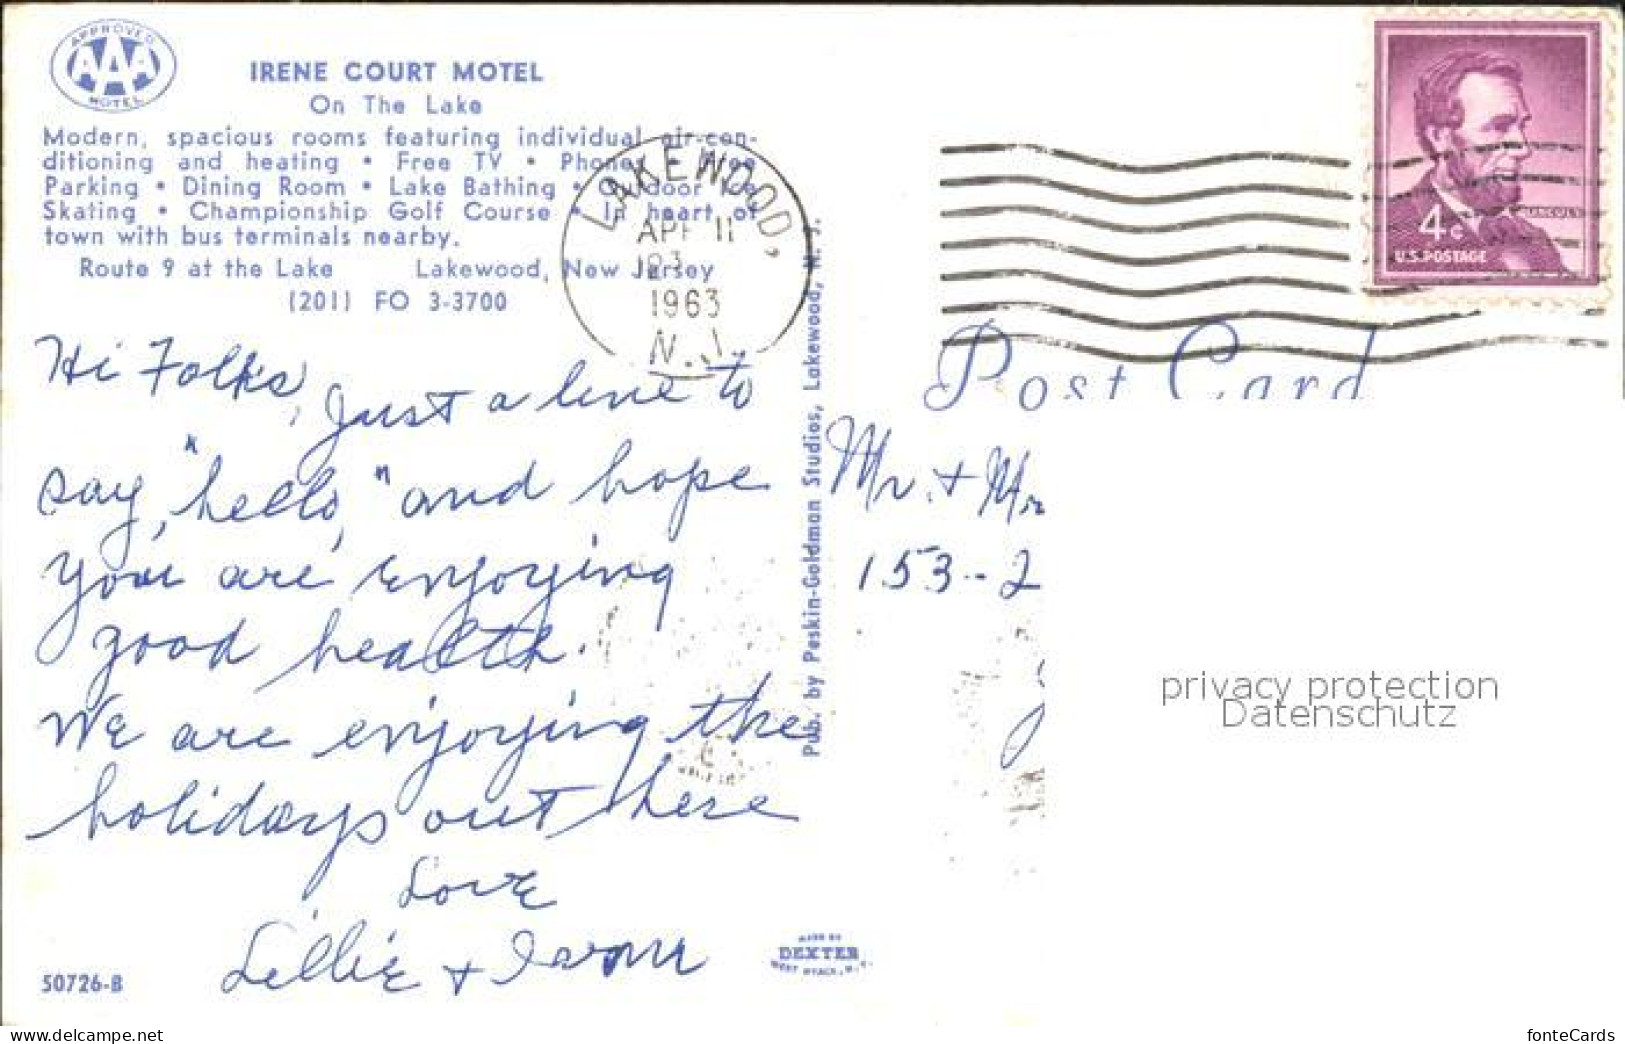 APPROVED
AAA
MOTEL
IRENE COURT MOTEL
On The Lake
Modern, spacious rooms featuring individual air-con-
ditioning and heating • Free TV • Phones • Free
Parking • Dining Room • Lake Bathing • Outdoor Ice
Skating • Championship Golf Course • In heart of
town with bus terminals nearby.
Route 9 at the Lake Lakewood, New Jersey
(201) FO 3-3700
LAKEWOOD,
APR 11
1963
N.J.
LINCOLN
4c
U.S. POSTAGE
Post Card
Hi Folks,
Just a line to
say, "hello," and hope
you are enjoying
good health.
We are enjoying the
holidays out here
Love
Lillie +
Pub. by Peskin-Goldman Studios, Lakewood, N. J.
Mr. + Mr
153--2
privacy protection
Datenschutz
50726-B
MADE BY
DEXTER
WEST NYACK, N.Y.
www.delcampe.net
fonteCards